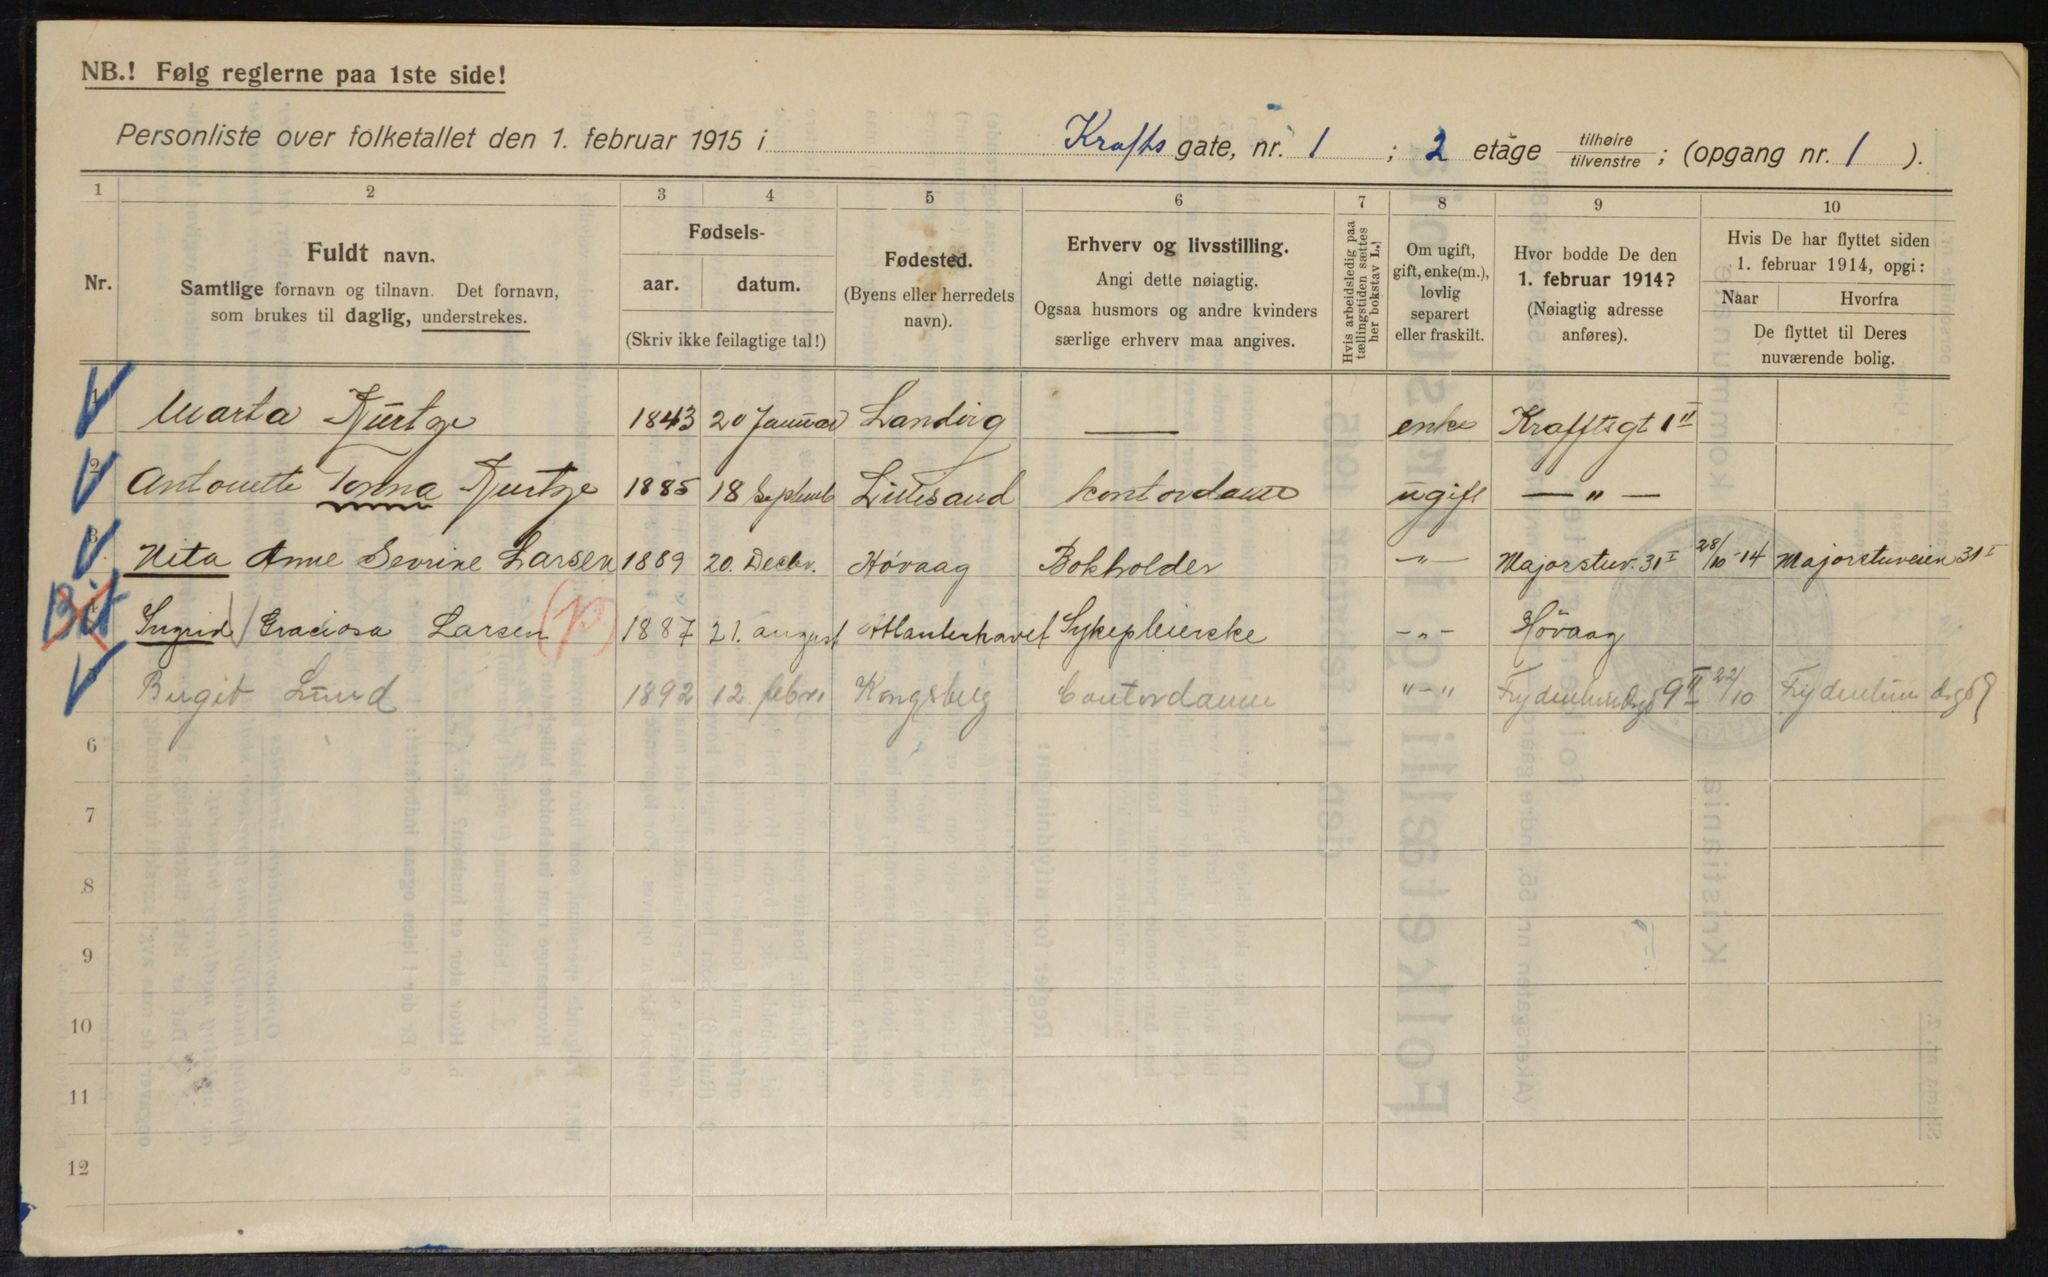 NB.! Følg reglerne paa 1ste side!
Personliste over folketallet den 1. februar 1915 i Krafts gate, nr. 1 ; 2 etage tilhøire/tilvenstre ; (opgang nr. 1 ).
1 2 3 4 5 6 7 8 9 10
Nr.
Fuldt navn.
Samtlige fornavn og tilnavn. Det fornavn,
som brukes til daglig, understrekes.
Fødsels-
aar. datum.
(Skriv ikke feilagtige tal!)
Fødested.
(Byens eller herredets
navn).
Erhverv og livsstilling.
Angi dette nøiagtig.
Ogsaa husmors og andre kvinders
særlige erhverv maa angives.
Hvis arbeidsledig paa
tællingstiden sættes
her bokstav L.)
Om ugift,
gift, enke(m.),
lovlig
separert
eller fraskilt.
Hvor bodde De den
1. februar 1914?
(Nøiagtig adresse
anføres).
Hvis De har flyttet siden
1. februar 1914, opgi:
Naar Hvorfra
De flyttet til Deres
nuværende bolig.
1 Marta Kjurtge 1843 20 Januar Landvig — enke Krafftsgt 1 II
2 Antonette Tonna Kjurtge 1885 18 Septemb Lillesand Kontordame ugift — " —
3 Nita Anne Sevrine Larsen 1889 20. Decbr. Høvaag Bokholder — " — Majorstuv. 31 I 28/10-14 Majorstuveien 31 I
Bit 4 Ingrid Graciosa Larsen (p) 1887 21. august Atlanterhavet Sykepleierske - " - Høvaag
Birgit Lund 1892 12 febr Kongsberg Contordame " - " Frydenlundsgt 9 II 22/10 Frydenlundsgt 9
6
7
8
9
10
11
12